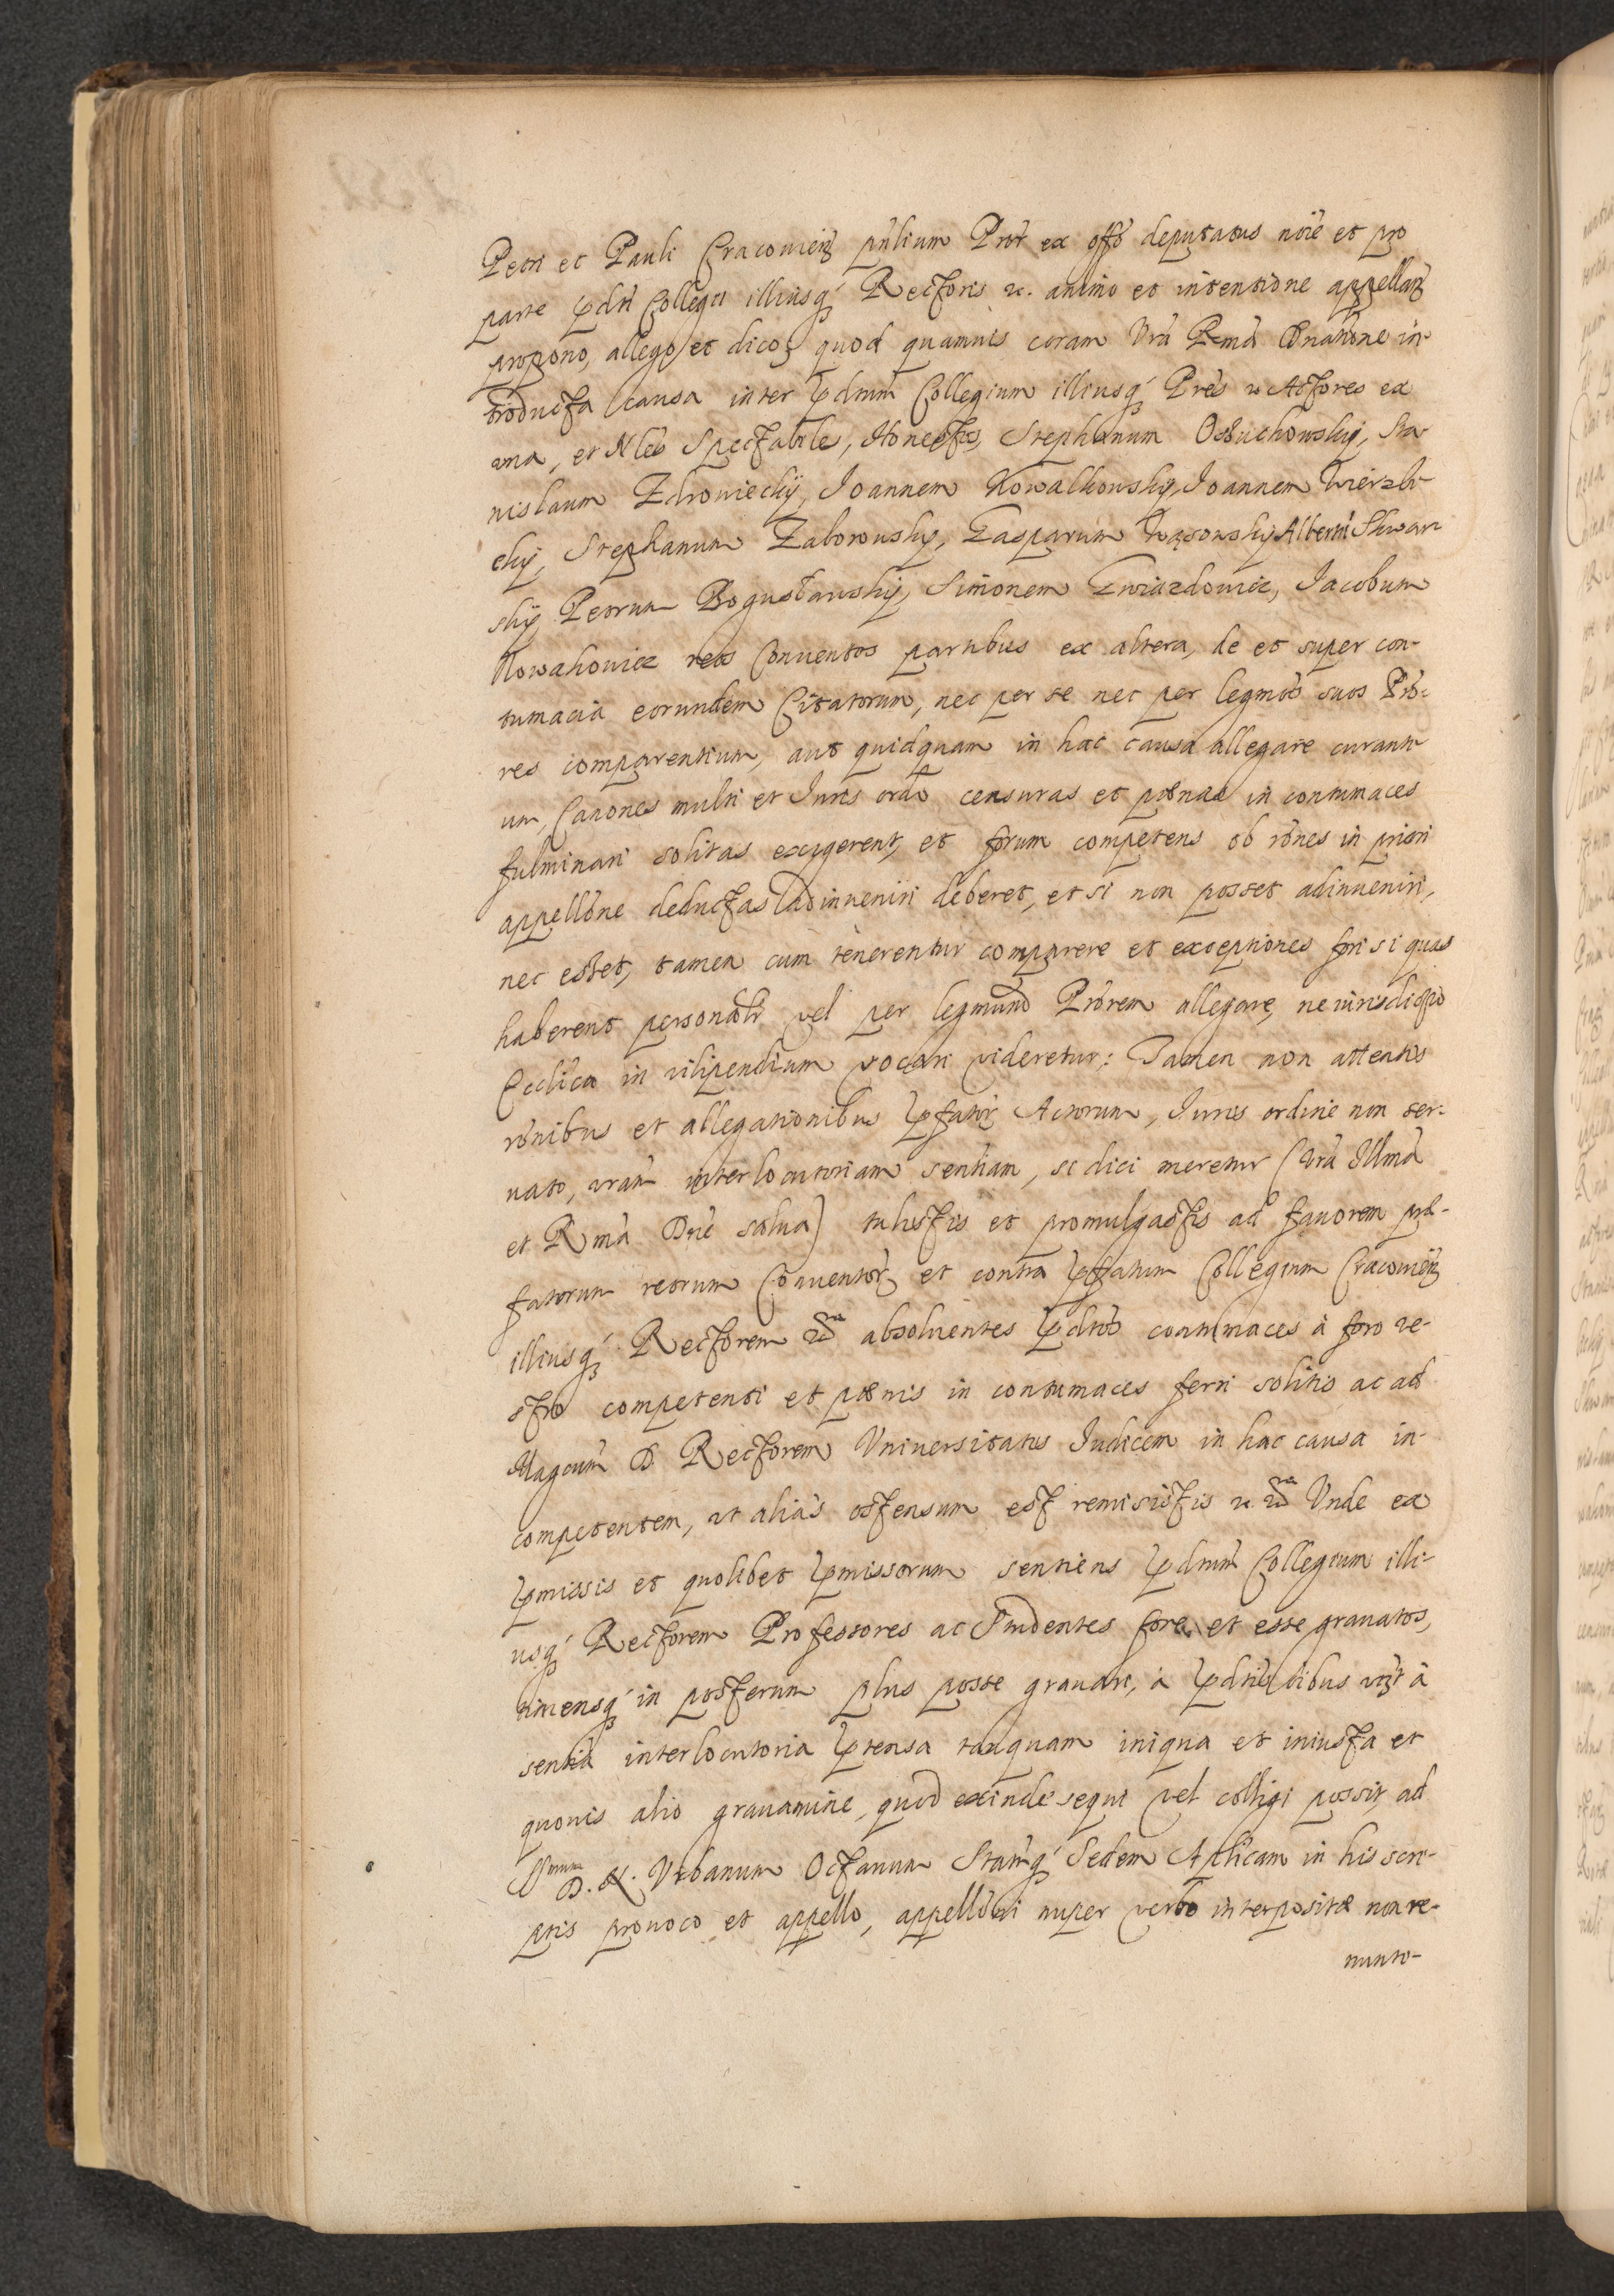 Petri et Pauli Cracovień pńlium Prōr ex offō deputatus nōie et pro
parte p̱dti Collegii illiusq́ Rectoris etc. animo et intentione appellań
propono, allego, et dico, quod quamuis coram Vrā Rmā Dnatione in-
troducta causa inter p̱dtum Collegium illiusq́ Prēs etc. Actores ex
una, et Nles Spectabiles, Honestos, Stephanum Osuchowskÿ, Sta-
nislaum Zdrowieckÿ, Joannem Kowalkowskÿ, Joannem Wierzbi-
ckÿ, Stephanum Zaborowskÿ, Gasparum Wąsowskÿ, Albertū Skwar-
skÿ, Petrum Bogusławskÿ, Simonem Gwiazdowicz, Jacobum
Nowakowicz reos Conuentos partibus ex altera, de et super con-
tumacia eorundem Citatorum, nec per se nec per legmōs suos Prō-
res comparentium, aut quidquam in hac causa allegare curanti-
um, Canones multi et Juris ordo censuras et pœnas in contumaces
fulminari solitas exigerent, et forum competens ob rōnes in priori
appellōne deductas adinueniri deberet, et si non posset adinueniri,
nec esset, tamen cum tenerentur comparere et exceptiones fori si quas
haberent personalr vel per legmum Prōrem allegare, ne iurisdictio
Ecclica in vilipendium vocari videretur: Tamen non attentis
rōnibus et allegationibus p̱fator Actorum, Juris ordine non ser-
uato, vrām interlocutoriam sentiam, si dici meretur (Vrā Illmā
et Rmā Dne salua) tulistis et promulgastis ad fauorem præ-
fatorum reorum Conuentor et contra p̱fatum Collegium Cracovień
illiusq́ Rectorem etc. absoluentes p̱dtos contumaces à foro ve-
stro competenti et pœnis in contumaces ferri solitis ac ad
Magcum D. Rectorem Vniuersitatis Iudicem in hac causa in-
competentem, ut aliàs ostensum est remisistis etc. Vnde ex
p̱missis et quolibet p̱missorum sentiens p̱dtum Collegium illi-
usq́ Rectorem Professores ac Studentes fore et esse grauatos,
timensq́ in posterum plus posse grauari, à p̱dtis oibus vizt à
sentia interlocutoria p̱tensa tanquam iniqua et iniusta et
quouis alio grauamine, quod exinde sequi vel colligi possit, ad
Ssmum D. N. Vrbanum Octauum Stamq́ Sedem Aplicam in his scri-
ptis prouoco et appello, appellōni nuper verbo interpositæ non re-
nuntō-